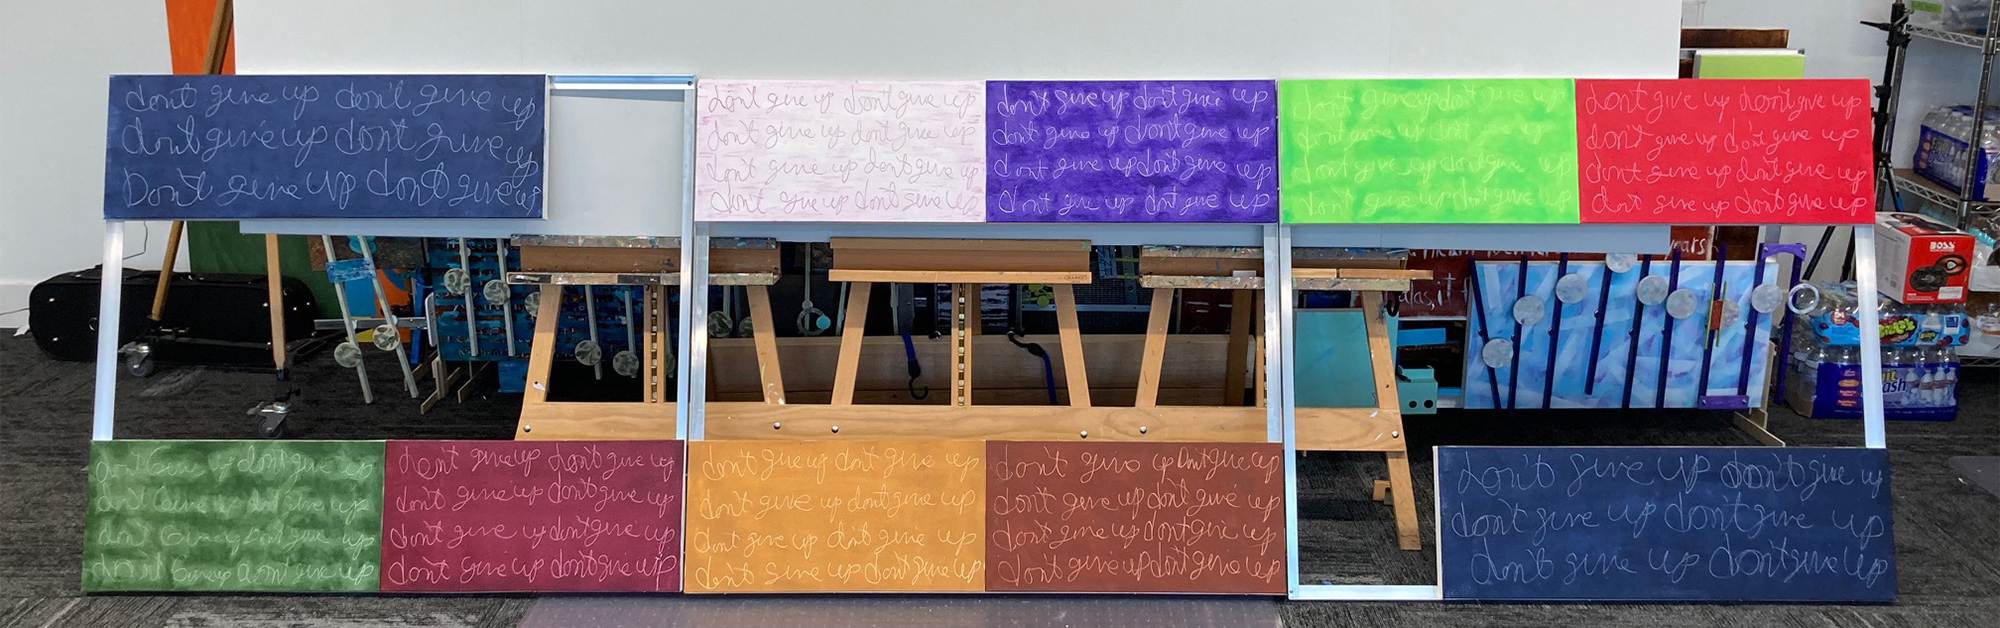 dont give up don't give up
dont give up dont give up
Don't give up dont give up
don't give up dont give up
dont give up dont give up
dont give up dont give up
dont give up dont give up
don't give up dont give up
dont give up dont give up
dont give up dont give up
dont give up dont give up
dont give up dont give up
dont give up dont give up
dont give up dont give up
dont give up dont give up
dont give up dont give up
dont give up dont give up
dont give up dont give up
dont give up dont give up
BOSS
years
alas, it
dont Give up dont give up
dont Give up dont give up
dont Give up dont give up
dont Give up dont give up
dont give up dont give up
dont give up dont give up
dont give up dont give up
dont give up dont give up
don't give up don't give up
dont give up dont give up
dont give up dont give up
dont give up dont give up
don't give up Dont give up
dont give up dont give up
dont give up dont give up
dont give up dont give up
don't give up don't give up
dont give up dont give up
don't give up don't give up